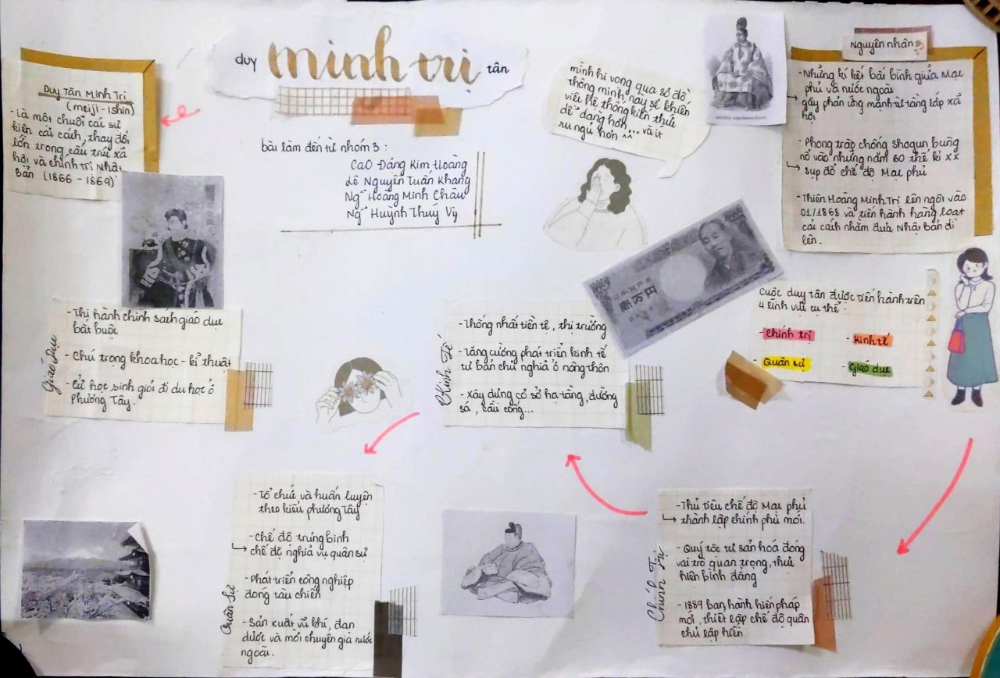 duy minh trị tân
Duy Tân Minh Trị
(meiji-ishin)
- Là một chuỗi các sự
kiện cải cách, thay đổi
lớn trong cấu trúc xã
hội và chính trị Nhật
Bản (1866 - 1869)
bài làm đến từ nhóm 3 :
Cao Đặng Kim Hoàng
Lê Nguyễn Tuấn Khang
Ng~ Hoàng Minh Châu
Ng~ Huỳnh Thuý Vy
mình hi vọng qua sơ đồ
thông minh này sẽ khiến
việc hệ thống kiến thức
dễ dàng hơn ... và ít
ru ngủ hơn ^^
Nguyên nhân
- Những kí kết bất bình giữa Mạc
phủ và nước ngoài
↳ gây phản ứng mạnh từ tầng lớp xã
hội
- Phong trào chống shogun bùng
nổ vào những năm 60 thế kỉ XX
↳ sụp đổ chế độ Mạc phủ
- Thiên Hoàng Minh Trị lên ngôi vào
01/1868 và tiến hành hàng loạt
cải cách nhằm đưa Nhật Bản đi
lên.
Cuộc duy tân được tiến hành trên
4 lĩnh vực cụ thể :
- Chính trị
- Kinh tế
- Quân sự
- Giáo dục
Giáo dục
- Thi hành chính sách giáo dục
bắt buộc
- Chú trọng khoa học - kĩ thuật
- Cử học sinh giỏi đi du học ở
Phương Tây.
Kinh Tế
- Thống nhất tiền tệ, thị trường
- Tăng cường phát triển kinh tế
tư bản chủ nghĩa ở nông thôn
- Xây dựng cơ sở hạ tầng, đường
sá, cầu cống...
壱万円
Quân Sự
- Tổ chức và huấn luyện
theo kiểu phương Tây
- Chế độ trưng binh
↳ chế độ nghĩa vụ quân sự
- Phát triển công nghiệp
đóng tàu chiến
- Sản xuất vũ khí, đạn
dược và mời chuyên gia nước
ngoài.
Chính Trị
- Thủ tiêu chế độ Mạc phủ
↳ thành lập chính phủ mới.
- Quý tộc tư sản hoá đóng
vai trò quan trọng, thực
hiện bình đẳng
- 1889 ban hành hiến pháp
mới, thiết lập chế độ quân
chủ lập hiến